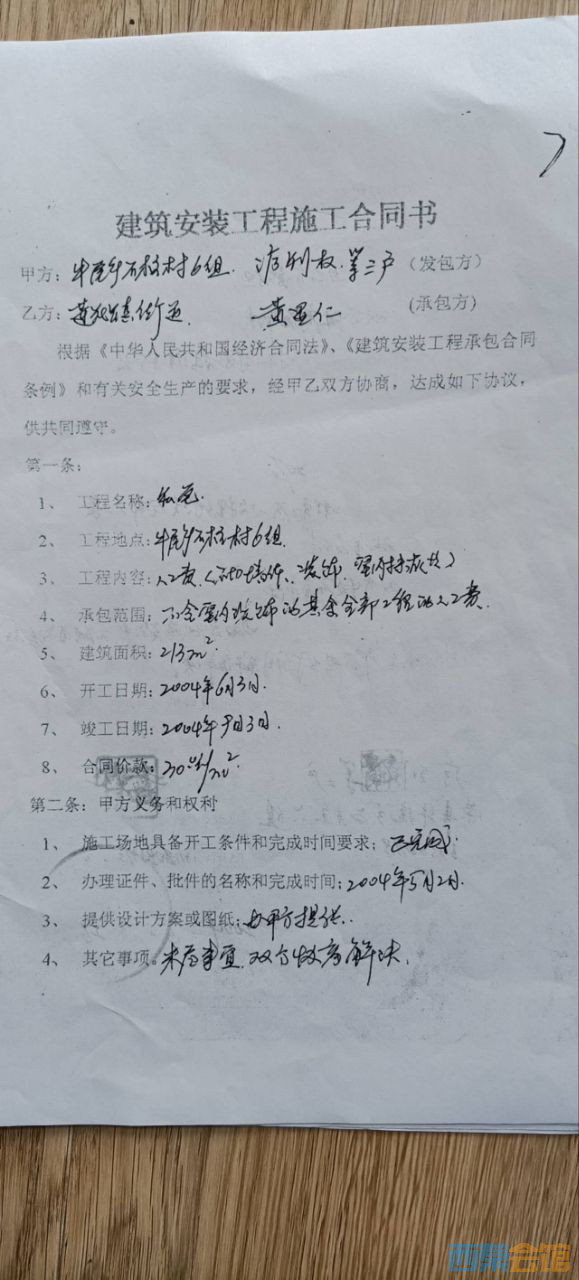 建筑安装工程施工合同书
甲方：牛尾乡石柱村6组. 权.等三户（发包方）
乙方： 黄 仁 （承包方）
根据《中华人民共和国经济合同法》、《建筑安装工程承包合同
条例》和有关安全生产的要求，经甲乙双方协商，达成如下协议，
供共同遵守。
第一条：
1、 工程名称：私宅.
2、 工程地点：牛尾乡石柱村6组.
3、 工程内容：人工费（ 装饰. 室内 ）
4、 承包范围：不含室内装饰的其余全部工程的人工费.
5、 建筑面积：213m².
6、 开工日期：2004年6月3日.
7、 竣工日期：2004年9月3日.
8、 合同价款： /m²
第二条：甲方义务和权利
1、 施工场地具备开工条件和完成时间要求：已完成.
2、 办理证件、批件的名称和完成时间：2004年5月2日.
3、 提供设计方案或图纸：由甲方提供.
4、 其它事项。未尽事宜.双方协商解决.
西祠会馆